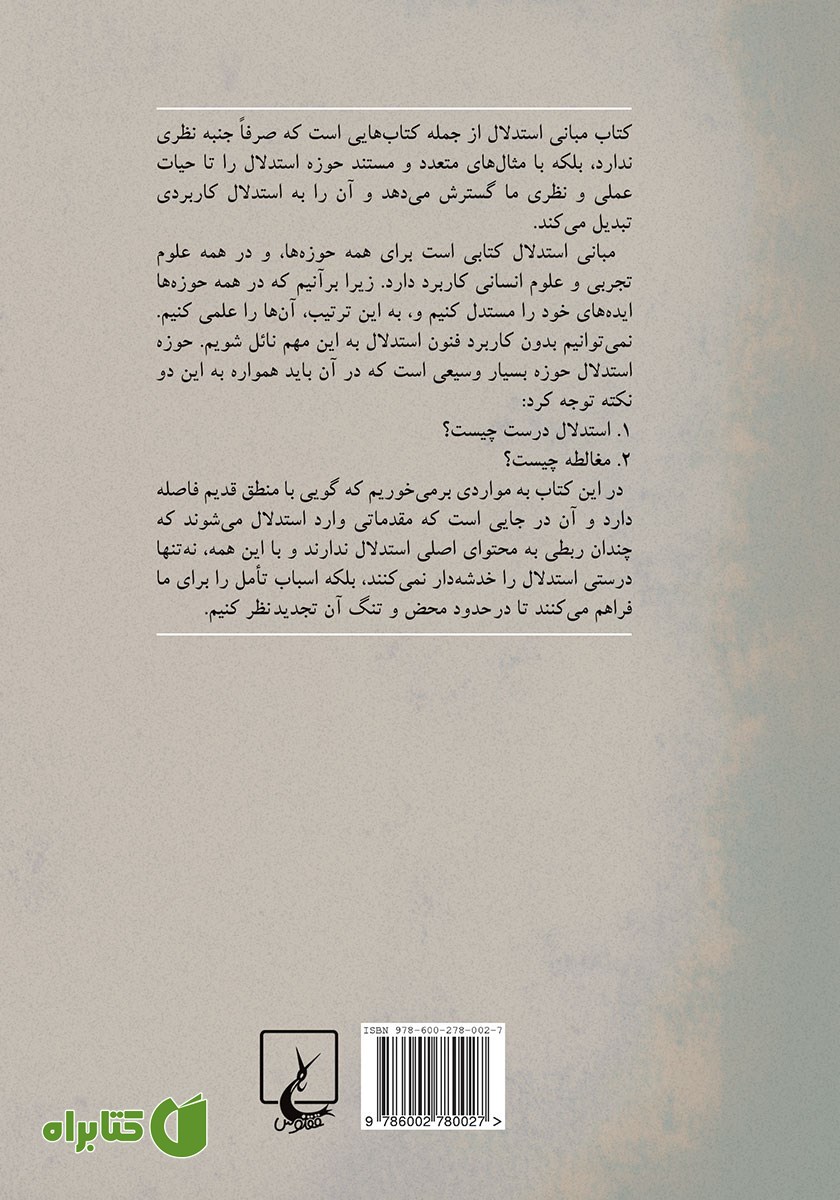 کتاب مبانی استدلال از جمله کتاب‌هایی است که صرفاً جنبه نظری
ندارد، بلکه با مثال‌های متعدد و مستند حوزه استدلال را تا حیات
عملی و نظری ما گسترش می‌دهد و آن را به استدلال کاربردی
تبدیل می‌کند.
مبانی استدلال کتابی است برای همه حوزه‌ها، و در همه علوم
تجربی و علوم انسانی کاربرد دارد. زیرا برآنیم که در همه حوزه‌ها
ایده‌های خود را مستدل کنیم و، به این ترتیب، آن‌ها را علمی کنیم.
نمی‌توانیم بدون کاربرد فنون استدلال به این مهم نائل شویم. حوزه
استدلال حوزه بسیار وسیعی است که در آن باید همواره به این دو
نکته توجه کرد:
۱. استدلال درست چیست؟
۲. مغالطه چیست؟
در این کتاب به مواردی برمی‌خوریم که گویی با منطق قدیم فاصله
دارد و آن در جایی است که مقدماتی وارد استدلال می‌شوند که
چندان ربطی به محتوای اصلی استدلال ندارند و با این همه، نه‌تنها
درستی استدلال را خدشه‌دار نمی‌کنند، بلکه اسباب تأمل را برای ما
فراهم می‌کنند تا درحدود محض و تنگ آن تجدیدنظر کنیم.
ISBN 978-600-278-002-7
9 786002 780027 >
ققنوس
کتابراه